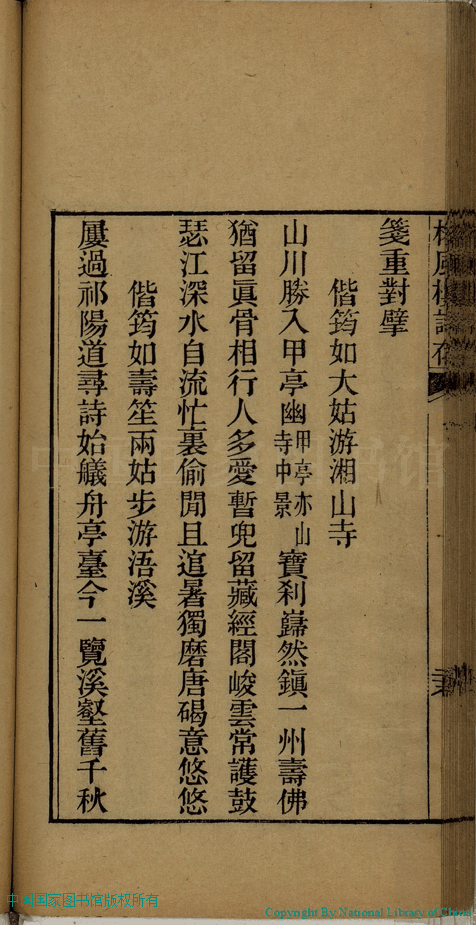 箋重對擘
偕筠如大姑游湘山寺
山川勝入甲亭幽甲亭亦山寺中景寶刹巋然鎭一州壽佛
猶留眞骨相行人多愛暫兜留藏經閣峻雲常護鼓
瑟江深水自流忙裏偷閒且逭暑獨磨唐碣意悠悠
偕筠如壽笙兩姑步游浯溪
屢過祁陽道尋詩始艤舟亭臺今一覽溪壑舊千秋
中国国家图书馆版权所有
Copyright By National Library of China